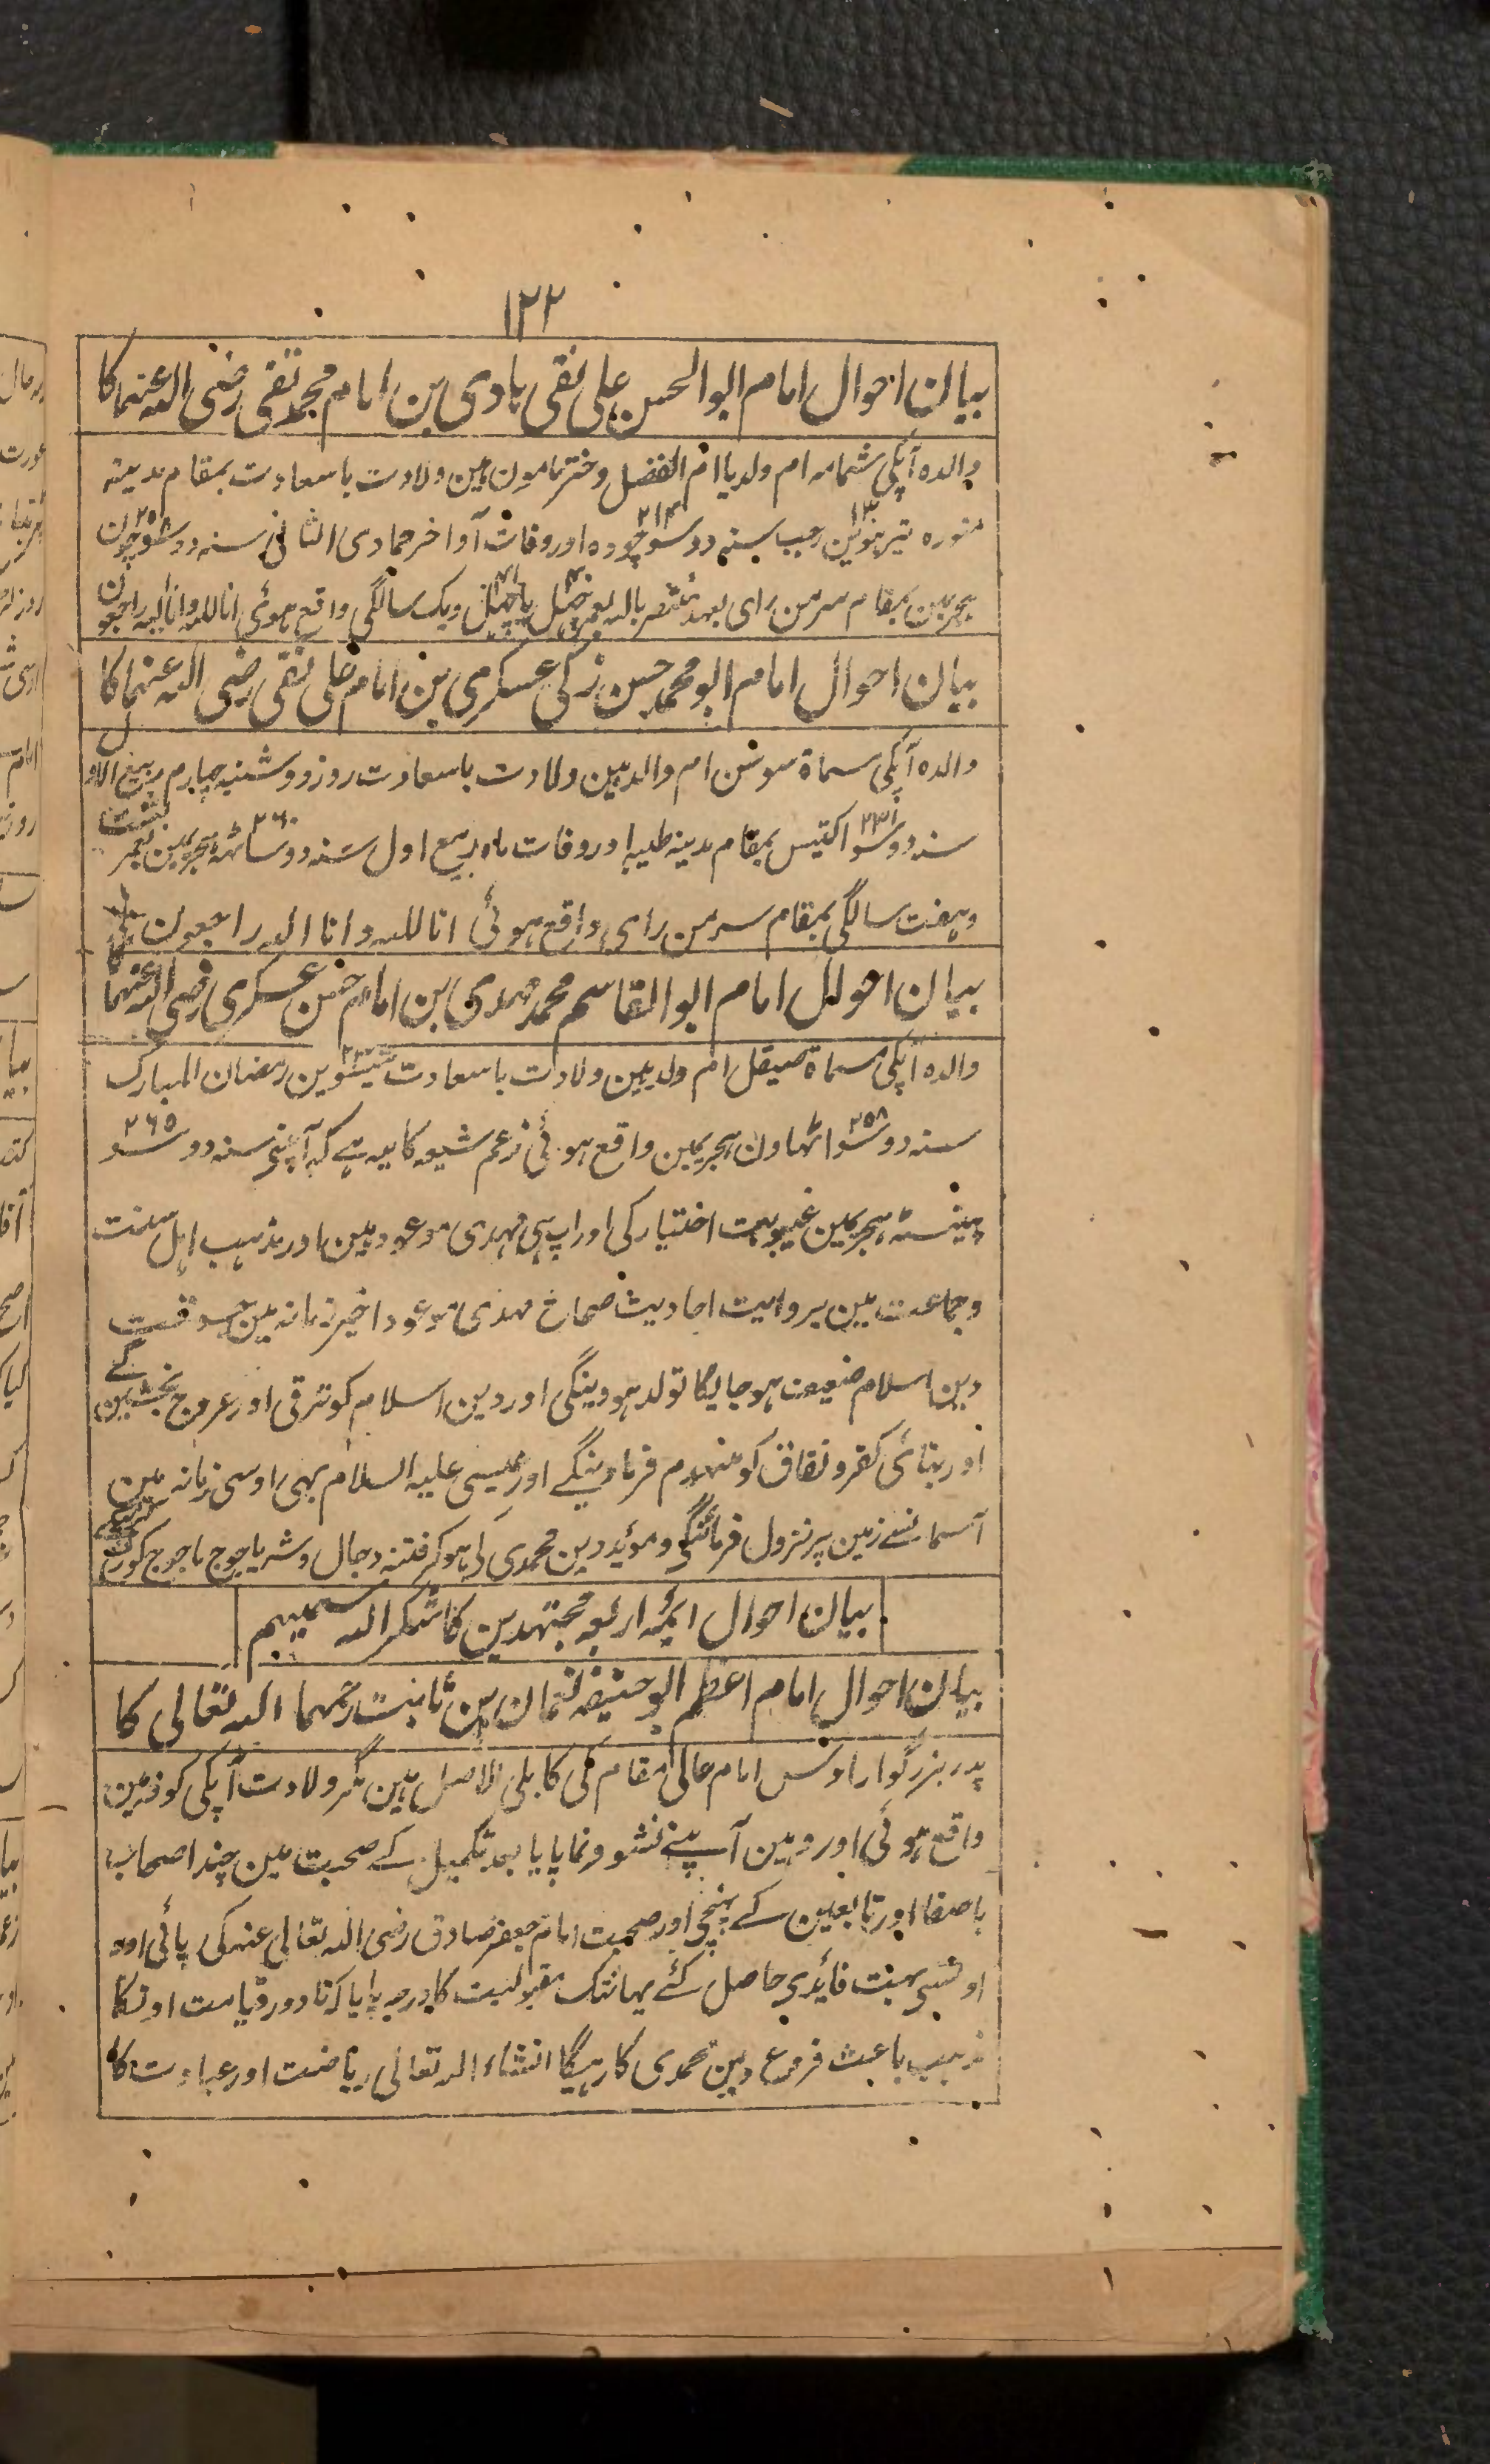 ۱۲۲
بیان احوال امام ابوالحسن علی نقی ہادی بن امام محمد تقی رضی اللہ عنہما کا
والدہ آپکی شمامہ ام ولد یا ام الفضل دختر مامون ہین ولادت باسعادت بمقام مدینہ
منورہ تیرہوین ۱۳ رجب سنہ دو سو چودہ ۲۱۴ اور وفات آواخر جمادی الثانی سنہ دو سو چون
ہجریمین بمقام سرمن رای بعہد منتصر باللہ بعمر چہل ۴۰ یا چہل ۴۱ ویک سالگی واقع ہوئی اناللہ وانا الیہ راجعون
بیان احوال امام ابو محمد حسن زکی عسکری بن امام علی نقی رضی اللہ عنہما کا
والدہ آپکی سماۃ سوسن ام والد ہین ولادت باسعادت روز دوشنبہ چہارم ربیع الاول
سنہ دو سو اکتیس ۲۳۱ بمقام مدینہ طیبہ اور وفات ماہ ربیع اول سنہ دو سو ساٹہہ ۲۶۰ ہجریمین بعمر بست
وہفت سالگی بمقام سرمن رای واقع ہوئی انا للہ و انا الیہ راجعون
بیان احوال امام ابوالقاسم محمد مہدی بن امام حسن عسکری رضی اللہ عنہما کا
والدہ آپکی مسماۃ صیقل ام ولد ہین ولادت باسعادت تیئسوین ۲۳ رمضان المبارک
سنہ دو سو اٹہاون ۲۵۸ ہجریمین واقع ہوئی زعم شیعہ کا یہ ہے کہ آپنے سنہ دو سو ۲۶۵
پینسٹہ ہجریمین غیبوبت اختیار کی اور آپ ہی مہدی موعود ہین اور مذہب اہل سنت
وجماعت مین بروایت احادیث صحاح مہدی موعود اخیر زمانہ مین جسوقت
دین اسلام ضعیف ہوجائیگا تولد ہووینگی اور دین اسلام کو ترقی اور عروج بخشین گے
اور بنائی کفر و نفاق کو منہدم فرماوینگے اور عیسی علیہ السلام بہی اوسی زمانہ مین
آسمانسے زمین پر نزول فرمائینگی و مؤید دین محمدی کی ہوکر فتنہ دجال و شر یاجوج ماجوج کو
بیان احوال ایمئہ اربعہ مجتہدین کا شکر اللہ سعیہم
بیان احوال امام اعظم ابو حنیفہ نعمان بن ثابت رحمہما اللہ تعالی کا
پدر بزرگوار اوس امام عالی مقام کی کابلی الاصل ہین مگر ولادت آپکی کوفہ مین
واقع ہوئی اور وہین آپنے نشو ونما پایا بعد تکمیل کے صحبت مین چند اصحاب
باصفا اور تابعین کے پہنچی اور صحبت امام جعفر صادق رضی اللہ تعالی عنہ کی پائی اور
اونسی بہت فائدی حاصل کئے یہانتک مقبولیت کا درجہ پایا کہ تا دور قیامت اونکا
مذہب باعث فروع دین محمدی کا رہیگا انشاء اللہ تعالی ریاضت اور عبادت کا